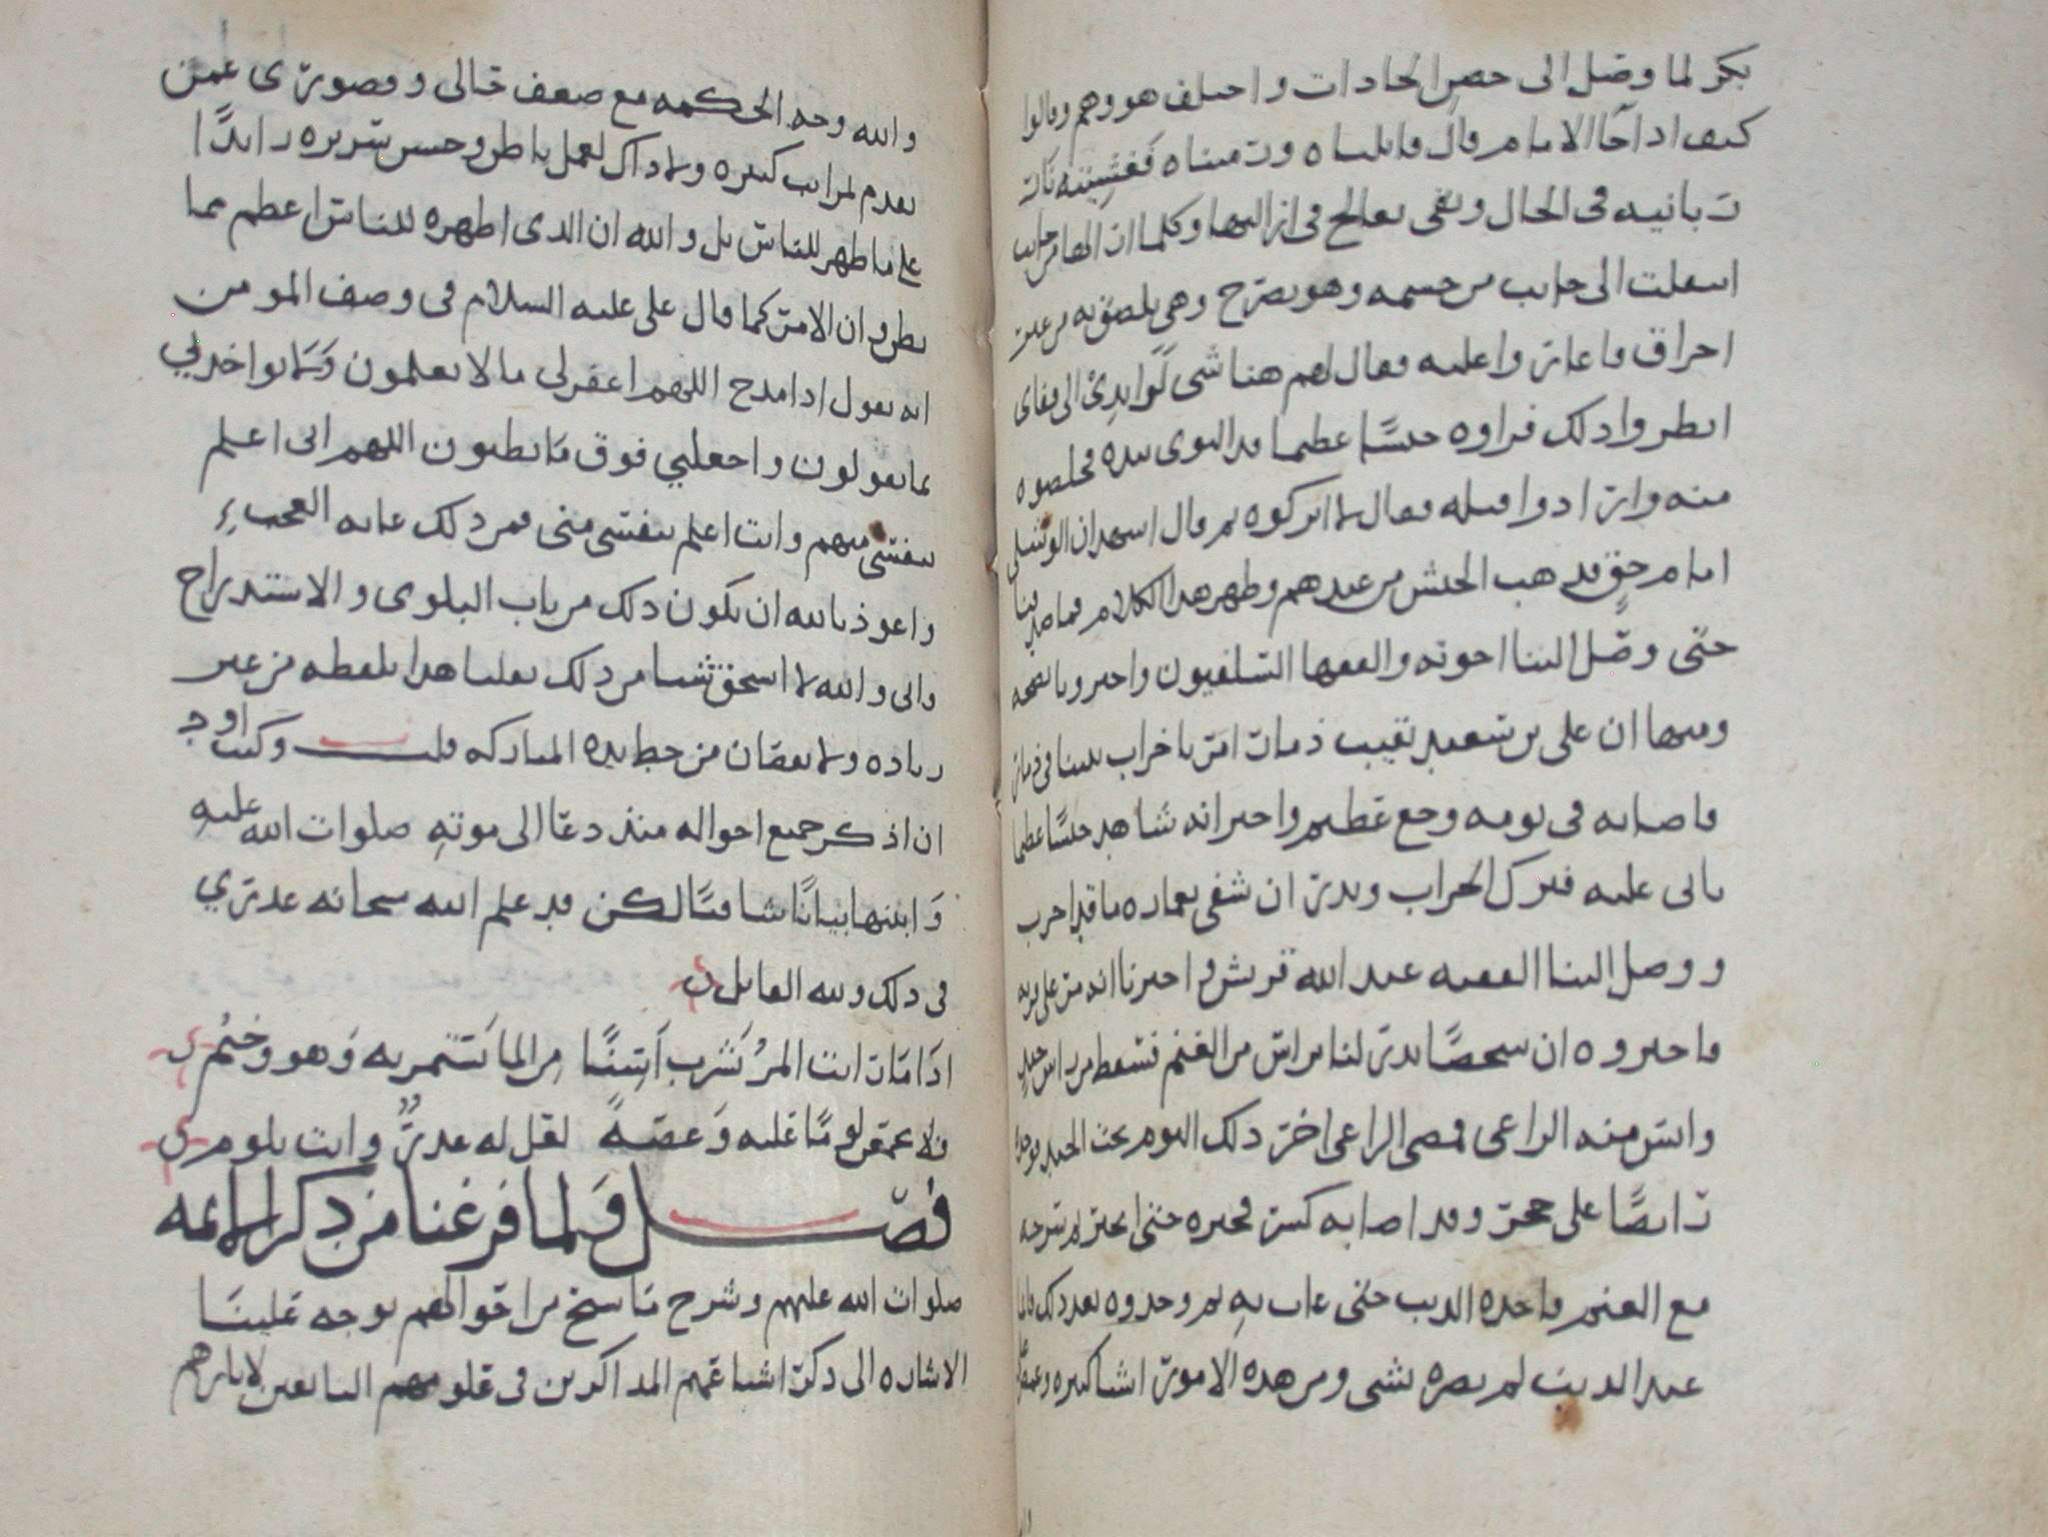 بكر لما وصل الى حصن الحادات واختلف هو وهم وقالوا
كيف اذا جا الامام قال قابلناه ورميناه فغشيته نار
ربانيه في الحال وبقي يعالج في ازالتها وكلما ازالها من جانب
انتقلت الى جانب من جسمه وهو يصرخ وهي تلصق به من غير
احراق فاغاروا عليه فقال لهم هنا شي لوا يدي الى قفاي
انظروا ذلك فراوه حنشا عظيما قد التوى بيده فخلصوه
منه وارادوا قتله فقال لا اتركوه ثم قال اشهد ان الوشلي
امام حق فذهب الحنش من عندهم وظهر هذا الكلام فما
حتى وصل الينا اخوته والفقها السلفيون واخبرونا بصحه
ومنها ان علي بن سعيد نقيب ذمار امر باخراب بيتنا في ذمار
فاصابه في نومه وجع عظيم واخبر انه شاهد حنشا عظيما
ياتي عليه فترك الخراب ونذر ان شفي بعماره ما قد اخرب
ووصل الينا الفقيه عبد الله قريش واخبرنا انه مر على قريه
فاخبروه ان شخصا نذر لنا براس من الغنم فسقط من راس جبل
وايس منه الراعي فمضى الراعي اخر ذلك اليوم تحت الجبل فوجده
رابضا على حجر وقد اصابه كسر فجبره حتى انجبر ثم سرحه
مع الغنم فاخذه الذيب حتى غاب به ثم وجدوه بعد ذلك قائما
عند الديب لم يضره بشي ومن هذه الامور اشيا كثيره
والله وجه الحكمه مع ضعف حالي وقصوري عمن
تقدم لمراتب كثيره ولا ذاك لعمل باطن وحسن سريره زايدا
على ما ظهر للناس بل والله ان الذي اظهره للناس اعظم مما
بطن وان الامر كما قال علي عليه السلام في وصف المومن
انه يقول اذا مدح اللهم اغفر لي ما لا يعلمون ولا تواخذني
بما يقولون واجعلني فوق ما يظنون اللهم اني اعلم
بنفسي منهم وانت اعلم بنفسي مني فمر ذلك غايه العجب
واعوذ بالله ان يكون ذلك من باب البلوى والاستدراج
واني والله لا استحق شيا من ذلك نقلنا هذا بلفظه من غير
زياده ولا نقصان من خط يده المباركه قلت وكنت اود
ان اذكر جميع احواله منذ دعا الى موته صلوات الله عليه
وابينها بيانا شافيا لكن قد علم الله سبحانه عذري
في ذلك ولله القايل
اذا مات انت المر يشرب آسنا من الما يستمر به وهو وخم
فلا تحقر لوما عليه وغصه لعل له عذر وانت تلوم
فصل ولما فرغنا من ذكر الائمه
صلوات الله عليهم وشرح ما سنح من احوالهم توجه علينا
الاشاره الى ذكر اشياعهم المذاكرين في علومهم التابعين لاثارهم